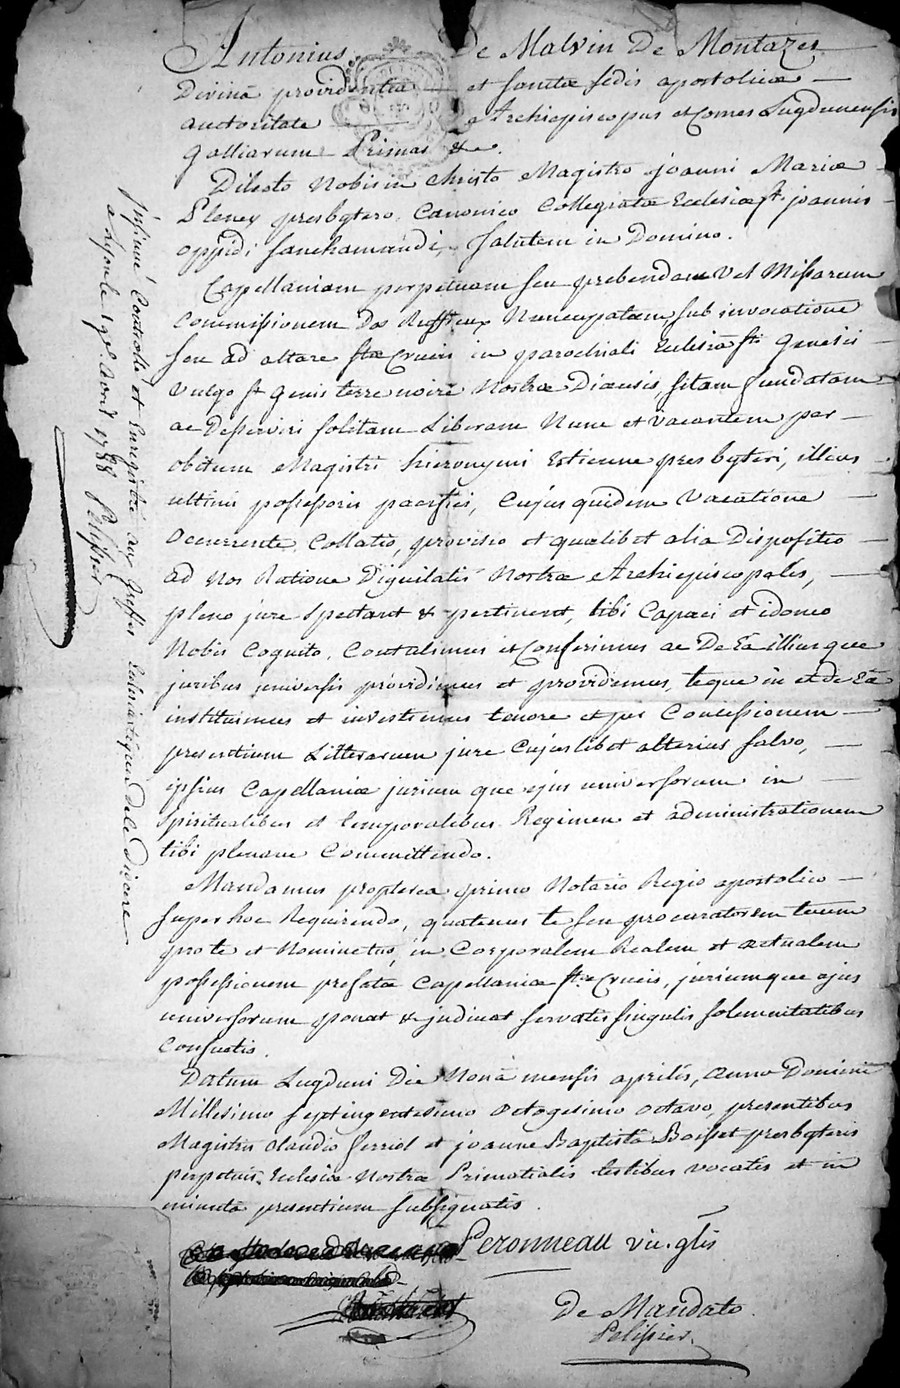 Antonius De Malvin De Montazet
Divinâ providentiâ et sanctæ sedis apostolicæ
auctoritate Archiepiscopus et Comes Lugdunensis
Galliarum Primas &c.
Dilecto Nobis in Christo Magistro joanni Mariæ
Pleney presbytero, Canonico Collegiatæ Ecclesiæ sti joannis
oppidi sanchamundi, Salutem in Domino.
Capellaniam perpetuam seu prebendam Vel Missarum
Commissionem Dos Ruffieux Nuncupatam sub invocatione
seu ad altare stæ Crucis in parochiali Ecclesiâ sti Genesii
Vulgo st Genis terre noire Nostræ Diœcesis, sitam fundatam
ac Deserviri solitam Liberam Nunc et vacantem per
obitum Magistri hieronymi Estienne presbyteri, illius
ultimi possessoris pacifici, Cujus quidem Vacatione
occurrente, Collatio, provisio et quælibet alia Dispositio
ad Nos Ratione Dignitatis Nostræ Archiepiscopalis,
pleno jure spectant & pertinent, tibi Capaci et idoneo
Nobis Cognito, Contulimus et Conferimus ac De Eâ illiusque
juribus universis providimus et providemus, teque in et de Eâ
instituimus et investimus tenore et per Concessionem
presentium Litterarum jure Cujuslibet alterius salvo,
ipsius Capellaniæ jurium que ejus universorum in
spiritualibus et temporalibus Regimen et administrationem
tibi plenam Committendo.
Mandamus propterea primo Notario Regio apostolico
super hoc Requirendo, quatenus te seu procuratorem tuum
pro te et Nomine tuo, in Corporalem Realem et actualem
possessionem prefatæ Capellaniæ stæ Crucis, juriumque ejus
universorum ponat & inducat servatis singulis solemnitatibus
Consuetis.
Datum Lugduni Die Nonâ mensis aprilis, anno Domini
Millesimo septingentesimo octogesimo octavo, presentibus
Magistris Claudio ferriol et joanne Baptistâ Boisset presbyteris
perpetuis Ecclesiæ Nostræ Primatialis testibus vocatis et in
minutâ presentium subsignatis.
Peronneau vic. glis
De Mandato
Pelissier
insinué Controllé et Enregistré au Greffe Ecclesiastique de le Diocese
a Lyon le 19e avril 1788 Pelissier